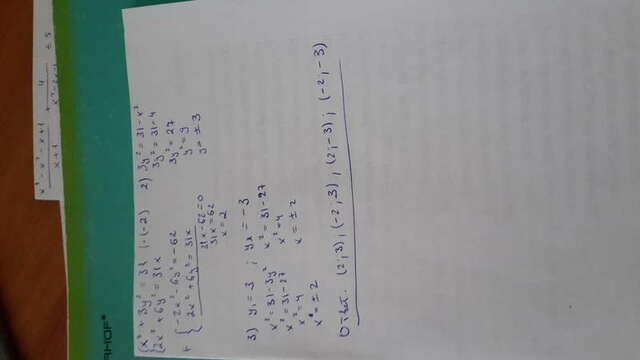 x³ - x² - x + 1 / x + 1 + 4 / ≤ 5
{ x² + 3y² = 31 | · (-2)
2x² + 6y² = 31x
+ { -2x² - 6y² = -62
2x² + 6y² = 31x
31x - 62 = 0
31x = 62
x = 2
2) 3y² = 31 - x²
3y² = 31 - 4
3y² = 27
y² = 9
y = ± 3
3) y₁ = 3 ; y₂ = -3
x² = 31 - 3y²
x² = 31 - 27
x² = 4
x = ± 2
x² = 31 - 27
x² = 4
x = ± 2
Ответ. (2; 3), (-2; 3) ; (2; -3) ; (-2; -3)